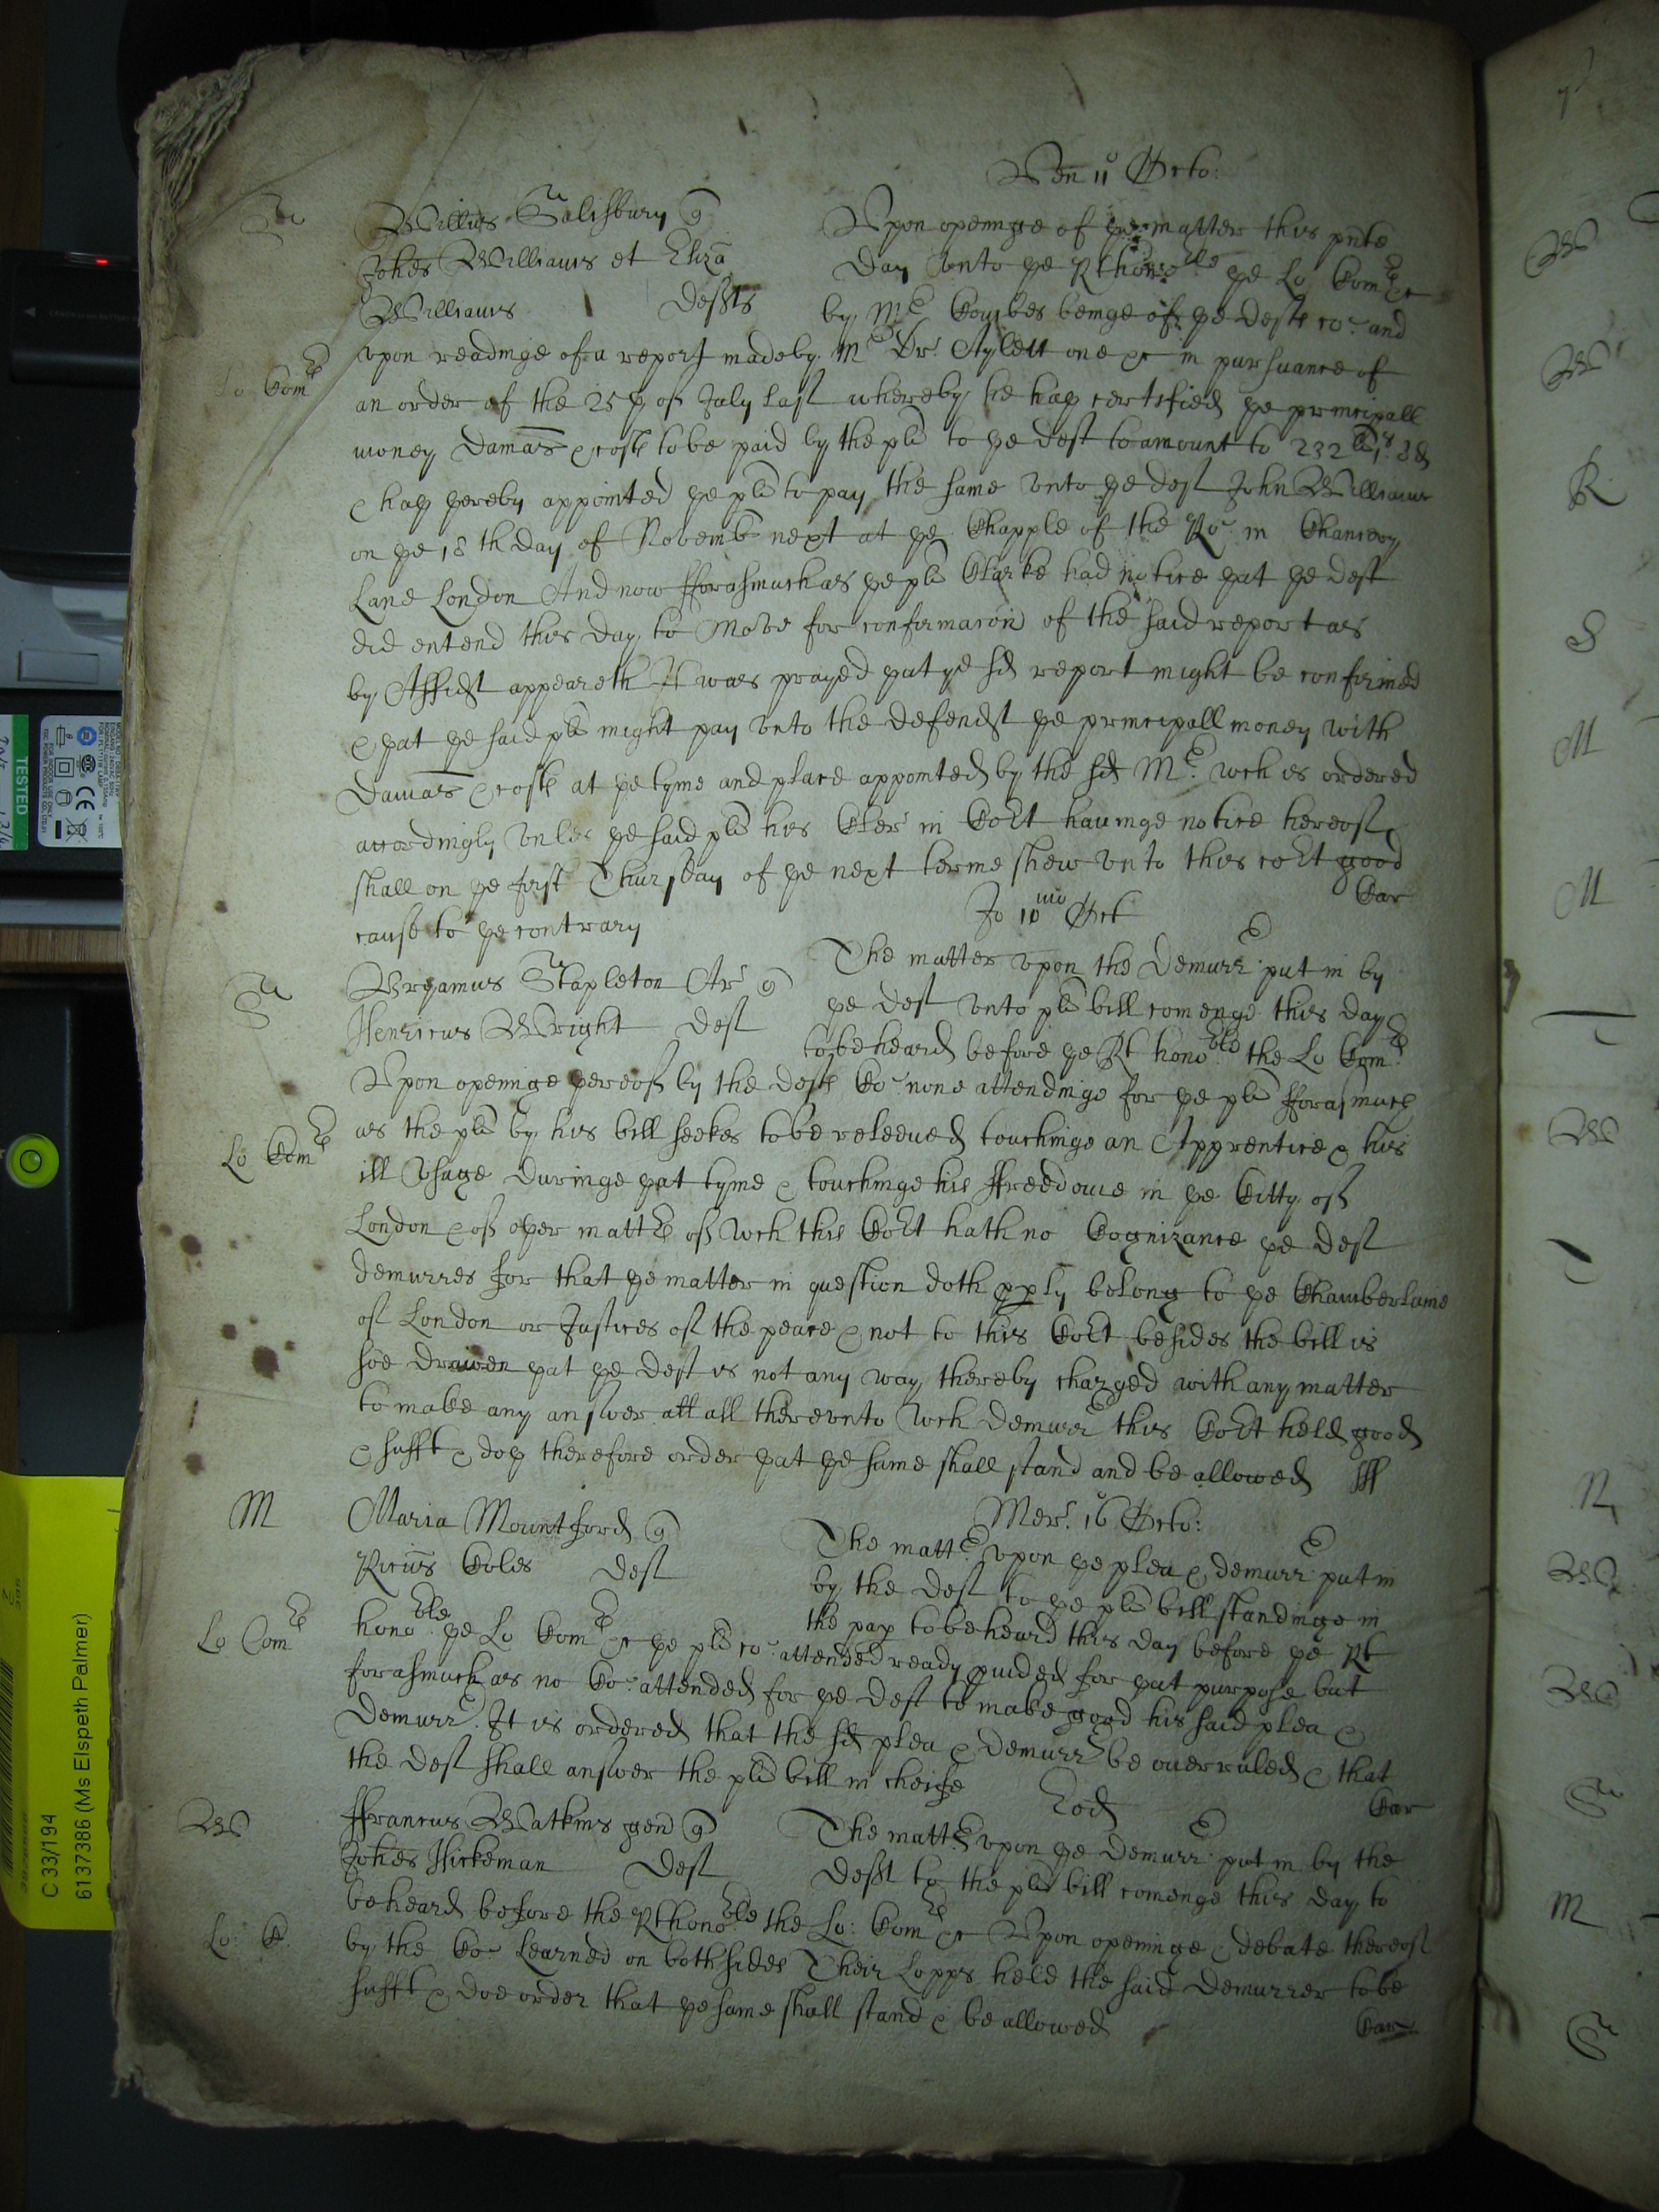 Ven 11º Octo:
S
Willus Salisbury q
Johes Williams et Eliza
Williams Defts
Upon openinge of ye matter this pnte
day unto ye Rt honoble ye Lo Comrs &c
by Mr Combes beinge of ye defts co: and
Lo Comrs
upon readinge of a report made by Mr Dr. Aylett one &c in pursuance of
an order of the 25th of July last whereby he hath certified ye principall
money damas & costs to be paid by the plt to ye deft to amount to 232li 1s 8d
& hath thereby appointed ye plt to pay the same unto ye deft John Williams
on ye 18th day of Novemb next at ye Chapple of the Ro: in Chancery
Lane London And now fforasmuch as ye plts Clarke had notice yat ye deft
did entend this day to move for confirmacon of the said report as
by Affidt appeareth It was prayed yat ye sd report might be confirmed
& yat ye said plt might pay unto the defendt ye principall money with
damas & costs at ye tyme and place appointed by the sd Mr. wch is ordered
accordingly unles ye said plt his Cler in Cort havinge notice hereof
shall on ye first Thursday of ye next terme shew unto this cort good
cause to ye contrary
Car
Jo 10mo Oct
S
Bryamus Stapleton Ar q
Henricus Wright Deft
The matter upon the Demurr put in by
ye deft unto plts bill cominge this day
to be heard before ye Rt honoble the Lo Comrs
Upon openinge thereof by the defts Co: none attendinge for ye plt fforasmuch
Lo Comrs
as the plt by his bill seekes to be releeved touchinge an Apprentice & his
ill usage duringe yat tyme & touchinge his ffreedome in ye Citty of
London & of other mattrs of wch this Cort hath no Cognizance ye deft
demurres for that ye matter in question doth pply belong to ye Chamberlaine
of London or Justices of the peace & not to this Cort besides the bill is
soe drawen yat ye deft is not any way thereby charged with any matter
to make any answer att all thereunto wch demurr this Cort held good
& sufft & doth therefore order yat ye same shall stand and be allowed
Mer. 16º Octo:
M
Maria Mountford q
Ricus Coles Deft
The mattr upon ye plea & demurr put in
by the Deft to ye plts bill standinge in
the pap to be heard this day before ye Rt
Lo Comrs
honoble ye Lo Comrs &c ye plts co: attended ready pvided for yat purpose but
forasmuch as no Co: attended for ye deft to make good his said plea &
Demurr. It is ordered that the sd plea & demurr be overruled & that
the deft shall answer the plts bill in cheife
Car
Eod
W
ffrancus Watkins gen q
Johes Hickeman Deft
The mattr upon ye demurr put in by the
Defft to the plts bill cominge this day to
be heard before the Rt honoble the Lo: Comrs &c Upon openinge & debate thereof
Lo: C.
by the Co: Learned on both sides Their Lopps held the said demurrer to be
sufft & doe order that ye same shall stand & be allowed
Car
TESTED
C 33/194
6137386 (Ms Elspeth Palmer)